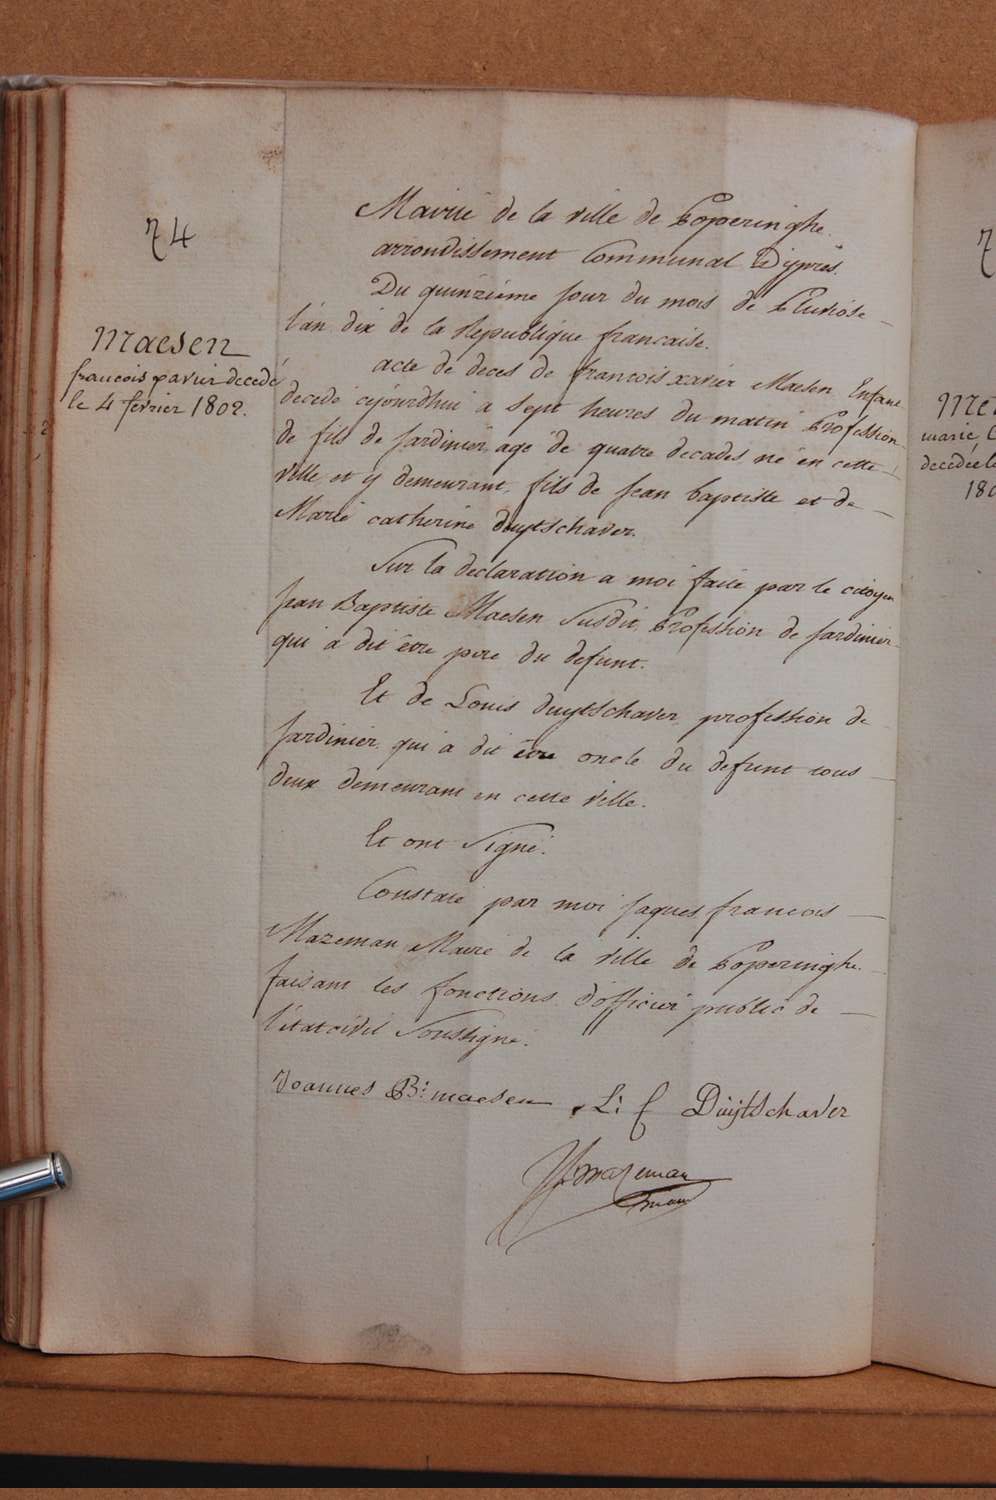 74
Maesen
francois xavier decedé
le 4 fevrier 1802.
Mairie de la ville de Poperinghe.
arrondissement Communal D'ypres.
Du quinzieme jour du mois de Pluviose
l'an dix de la Republique francaise.
acte de deces de francois xavier Maesen Enfant
decedé cejourdhui a sept heures du matin Profession
de fils de jardinier, agé de quatre decades né en cette
ville et y demeurant, fils de jean baptiste et de
Marie catherine duytschaver.
Sur la declaration a moi faite par le citoyen
Jean Baptiste Maesen susdit, Profession de jardinier
qui a dit être pere du defunt.
Et de Louis duytschaver, profession de
jardinier, qui a dit être oncle du defunt tous
deux demeurant en cette ville.
Et ont signé.
Constaté par moi jaques francois
Mazeman Maire de la ville de Poperinghe
faisant les fonctions d'officier public de
l'état civil soussigné.
Joannes B: maesen L: f Duijtschaver
Mazeman
Me
marie, C
decedée le
180
7
2